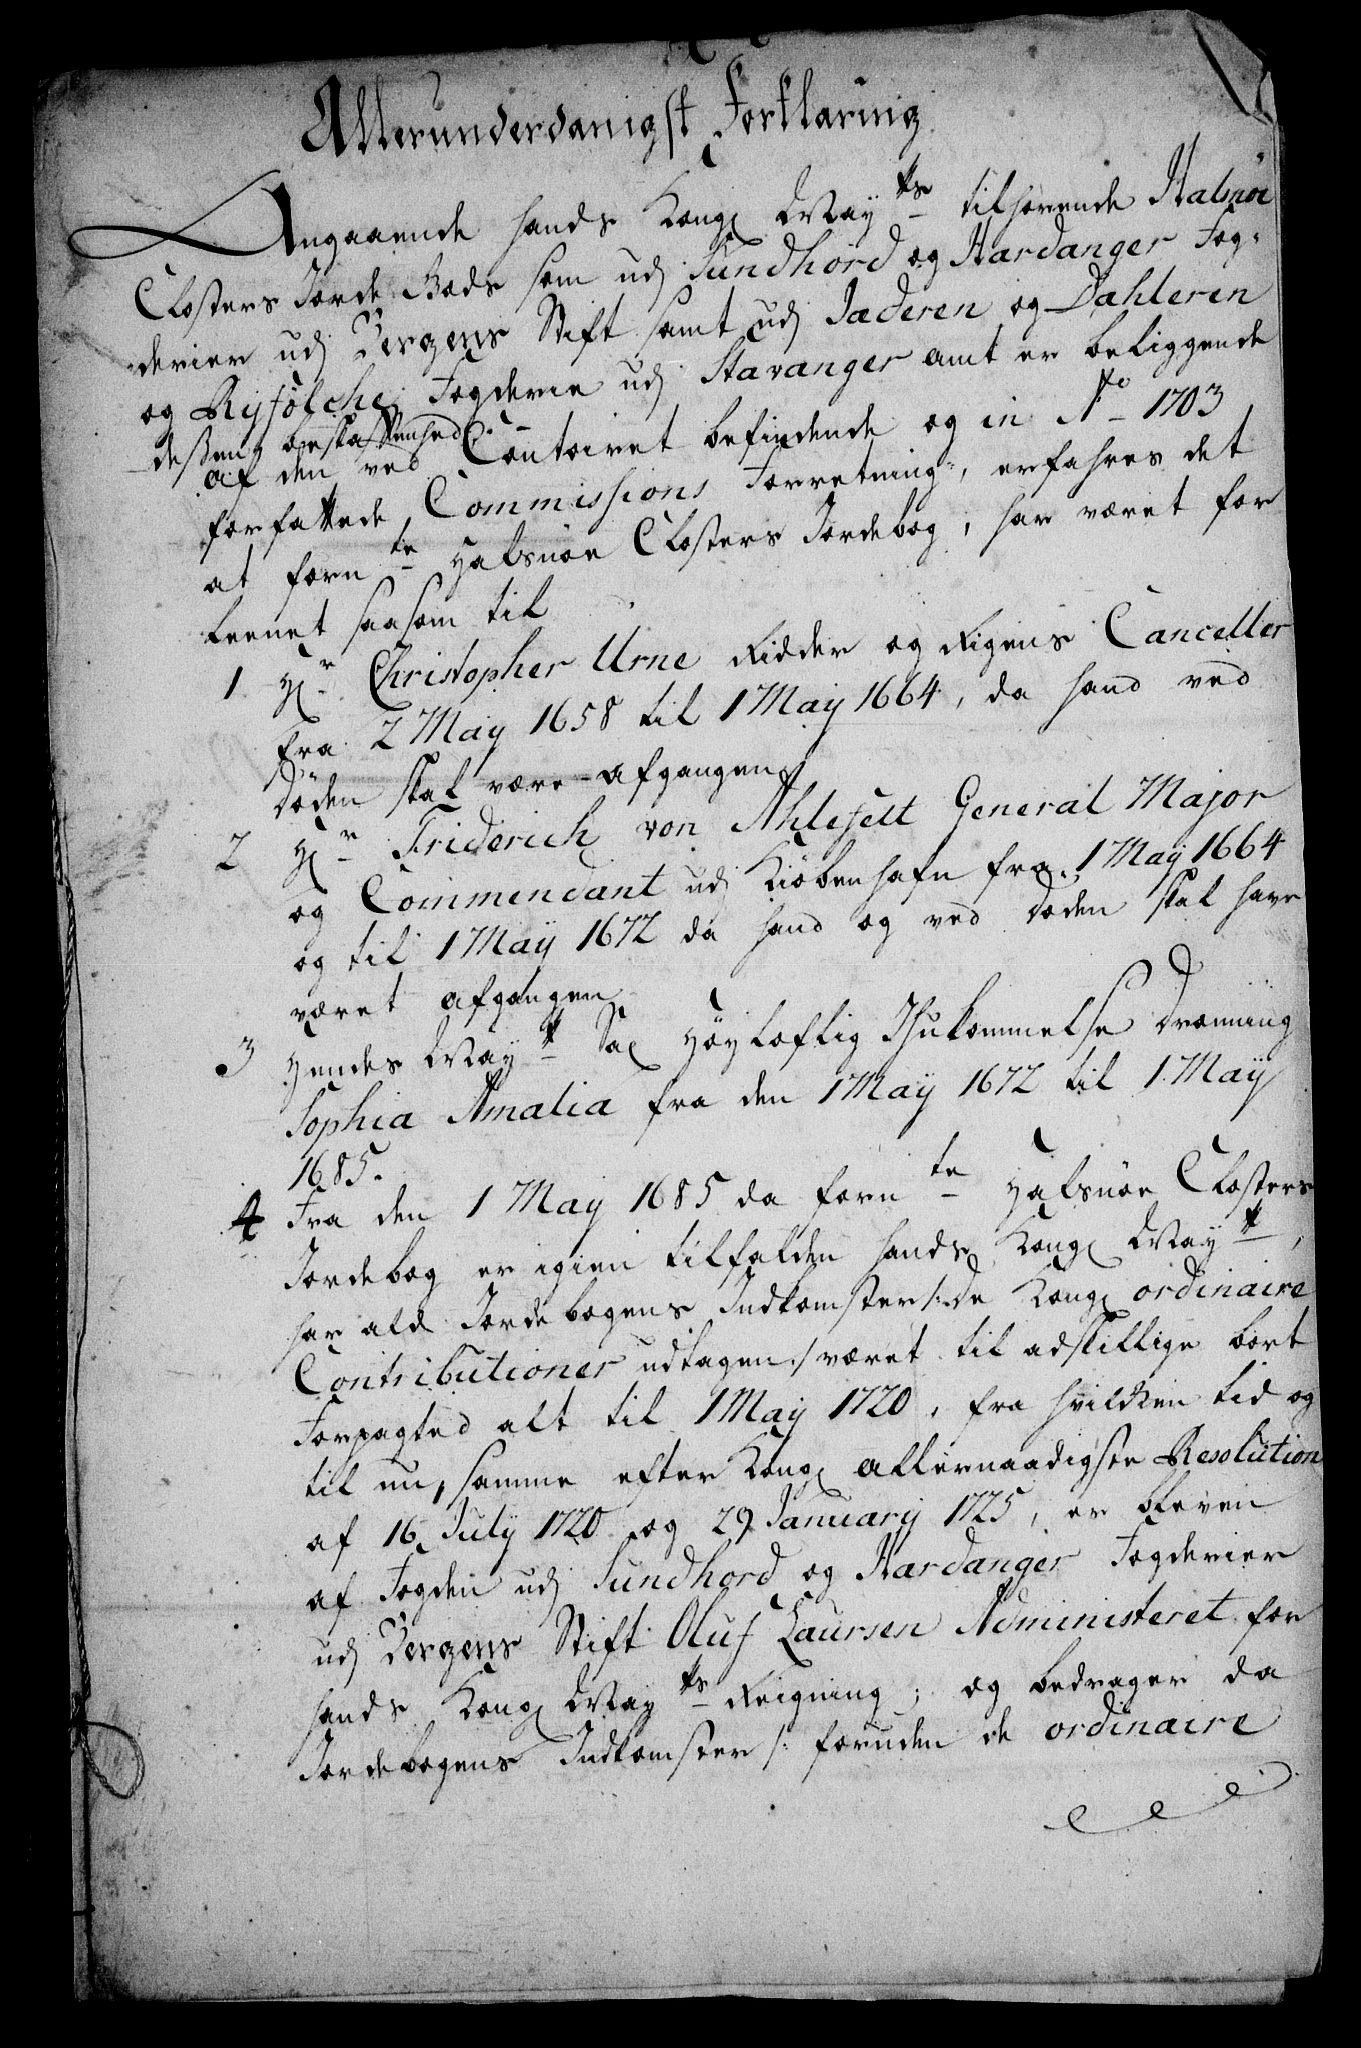 Allerunderdanigst Forklaring
Angaaende hands Kong: May:ts tilhørende Halsnøe
Closters Jorde Gods som udj Sundhord og Hardanger Fog-
derier udj Bergens Stift samt udj Jæderen og Dahleren
og Ryfølche Fogderie udj Stavanger amt er beliggende
desßen beskaffenhed.
af den ved Contoiret befindende og in Ao 1703
forfattede Commissions Forretning, erfahres det
at forn:te Halsnøe Closters Jordebog, har været for
leenet saasom til
1 Hr. Christopher Urne Ridder og Rigens Canceller
fra 2 May 1658 til 1 May 1664, da hand ved
Døden skal være afgangen
2 Hr. Friderich von Ahlefelt General Major
og Commendant udj Kiøbenhafn fra 1 May 1664
og til 1 May 1672 da hand og ved Døden skal have
været afgangen
3 Hendes May:t Sal: Høyloflig Ihukommelse Dronning
Sophia Amalia fra den 1 May 1672 til 1. May
1685.
4 Fra den 1 May 1685 da forn:te Halsnøe Closters
Jordebog er igien tilfalden hands Kong: May:t,
har ald Jordebogens Indkomster /: De Kong: ordinaire
Contributioner udtagen :/ været til adskillige bort
Forpagted alt til 1 May 1720, fra hvilcken tid og
til nu, samme efter Kong: allernaadigste Resolution
af 16 July 1720 og 29 January 1725, er bleven
af Fogden udj Sundhord og Hardanger Fogderier
udj Bergens Stift Oluf Laursen Administeret for
hands Kong: May:ts Reigning; og bedrager da
Jordebogens Indkomster /: foruden de ordinaire